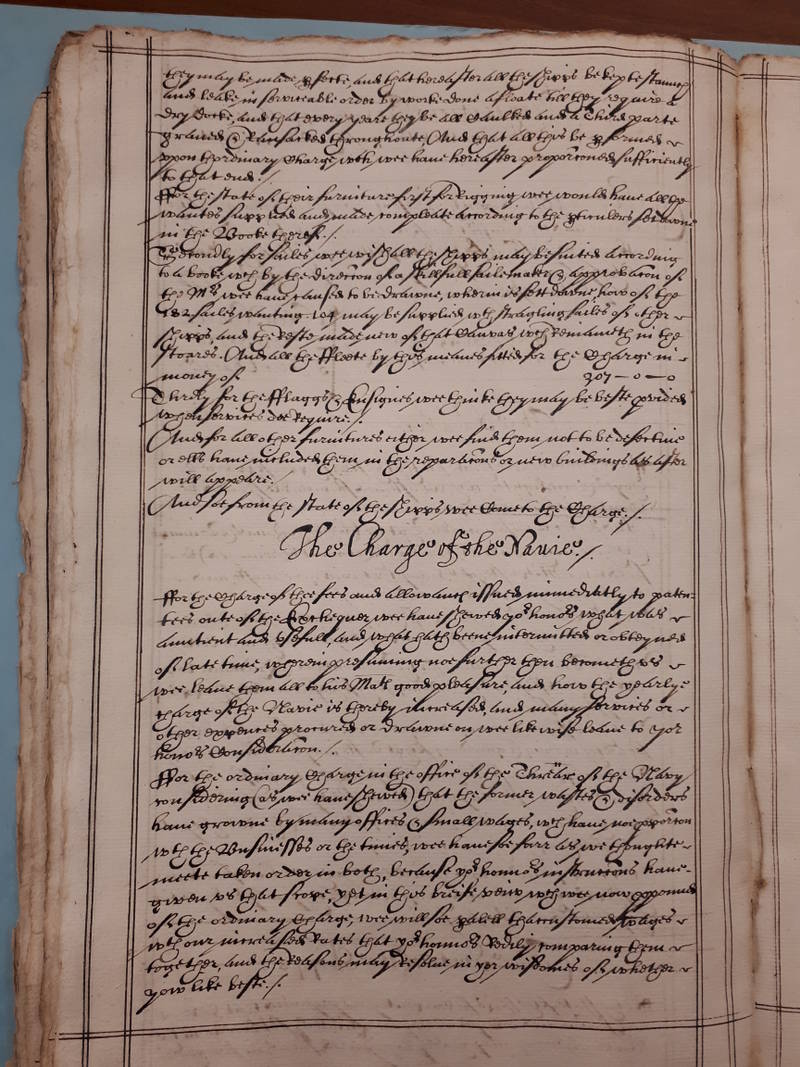 they may be made pfecte, and that hereafter all the Shipps be kepte stanncg
and leake in serviceable order by worke done afloate till they require a
Dry Docke, and that every yeare they be all Caulked and a Third parte
graved & Ransacked throughoute, And that all this be pformed
vpon thordinary Charge, wch wee haue hereafter proporconed sufficiently
to that end.
ffor the state of their furniture first for Rigging wee would haue all the
wantes supplied and made compleate according to the pticulers set downe
in the Booke therof./.
Secondly for sailes wee wish all the Shipps may be suted according
to a booke, wch by the direccon of a skillfull sailemaker & approbacon of
the Mrs wee haue caused to be drawne, wherin is sett downe, how of the
182 sailes wanting 104 may be supplied wth stragling sailes of other
shipps, and the Reste made new of that Canvas wch Remaineth in the
Stoares. And all the ffleete by this meanes fitted for the Charge in
money of 307 — 0 — 0
Thirdly for the fflaggs & Ensignes wee thinke they may be beste pvided
when services doe Require./.
And for all other furnitures either wee find them not to be defective
or ells haue included them in the reparacons or new buildings as after
will appeare.
And soe from the state of the shipps wee Come to the Charge./.
The Charge of the Navie./.
ffor the Charge of the fees and allowances issued immediatly to paten-
tees oute of the Exchequer wee haue shewed yor honors what was
auntient and vsefull, and what hath beene intermitted or obteyned
of late time, wherein presuming noe further then becometh vs
wee leaue them all to his Mats good pleasure, and how the yearly
charge of the Navie is thereby increased, and many services or
other expences procured or drawne on, wee likewise leaue to yor
honors Consideracon./.
ffor the ordinary Charge in the office of the Threār of the Navy
considering (as wee haue shewed) that the former wastes & disorders
haue growne by many offices & small wages, wch haue noe pporcon
wth the Businesses or the times, wee haue soe farr as we thoughte
meete taken order in both, because yor honnors instruccons haue
given vs that scope, yet in this breife view wch wee now ppound
of the ordinary Charge, wee will soe palell thaccustomed wages
wth our increased Rates that yor honnors Redily comparing them
together, and the Reasons may Resolue in yor wisdomes of whether
yow like beste./.